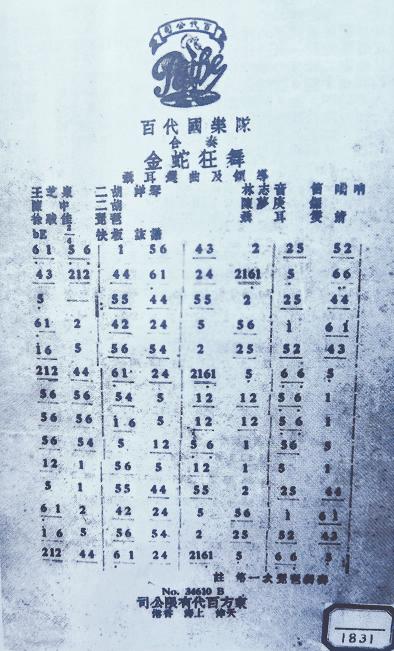 百代公司
Pathé
百代國樂隊
合奏
金蛇狂舞
聶耳選曲及領導
二胡 洋琴 林志音 笛
bE 2/4
61 56 1 56 43 2 25 52
43 212 44 61 24 2161 5 66
5 — 55 44 55 2 25 44
61 2 42 24 5 56 1 61
16 5 56 54 2 25 52 43
212 44 61 24 2161 5 66 5
56 56 54 5 12 12 56 1
56 56 16 5 12 12 56 1
56 54 5 12 56 1 56 5
12 1 56 5 12 1 5 1
5 1 55 44 55 2 25 44
61 2 42 24 5 56 1 61
16 5 56 54 2 25 52 43
212 44 61 24 2161 5 66 5
註 第一次
No. 34610 B
東方百代有限公司
天津 上海 香港
1831